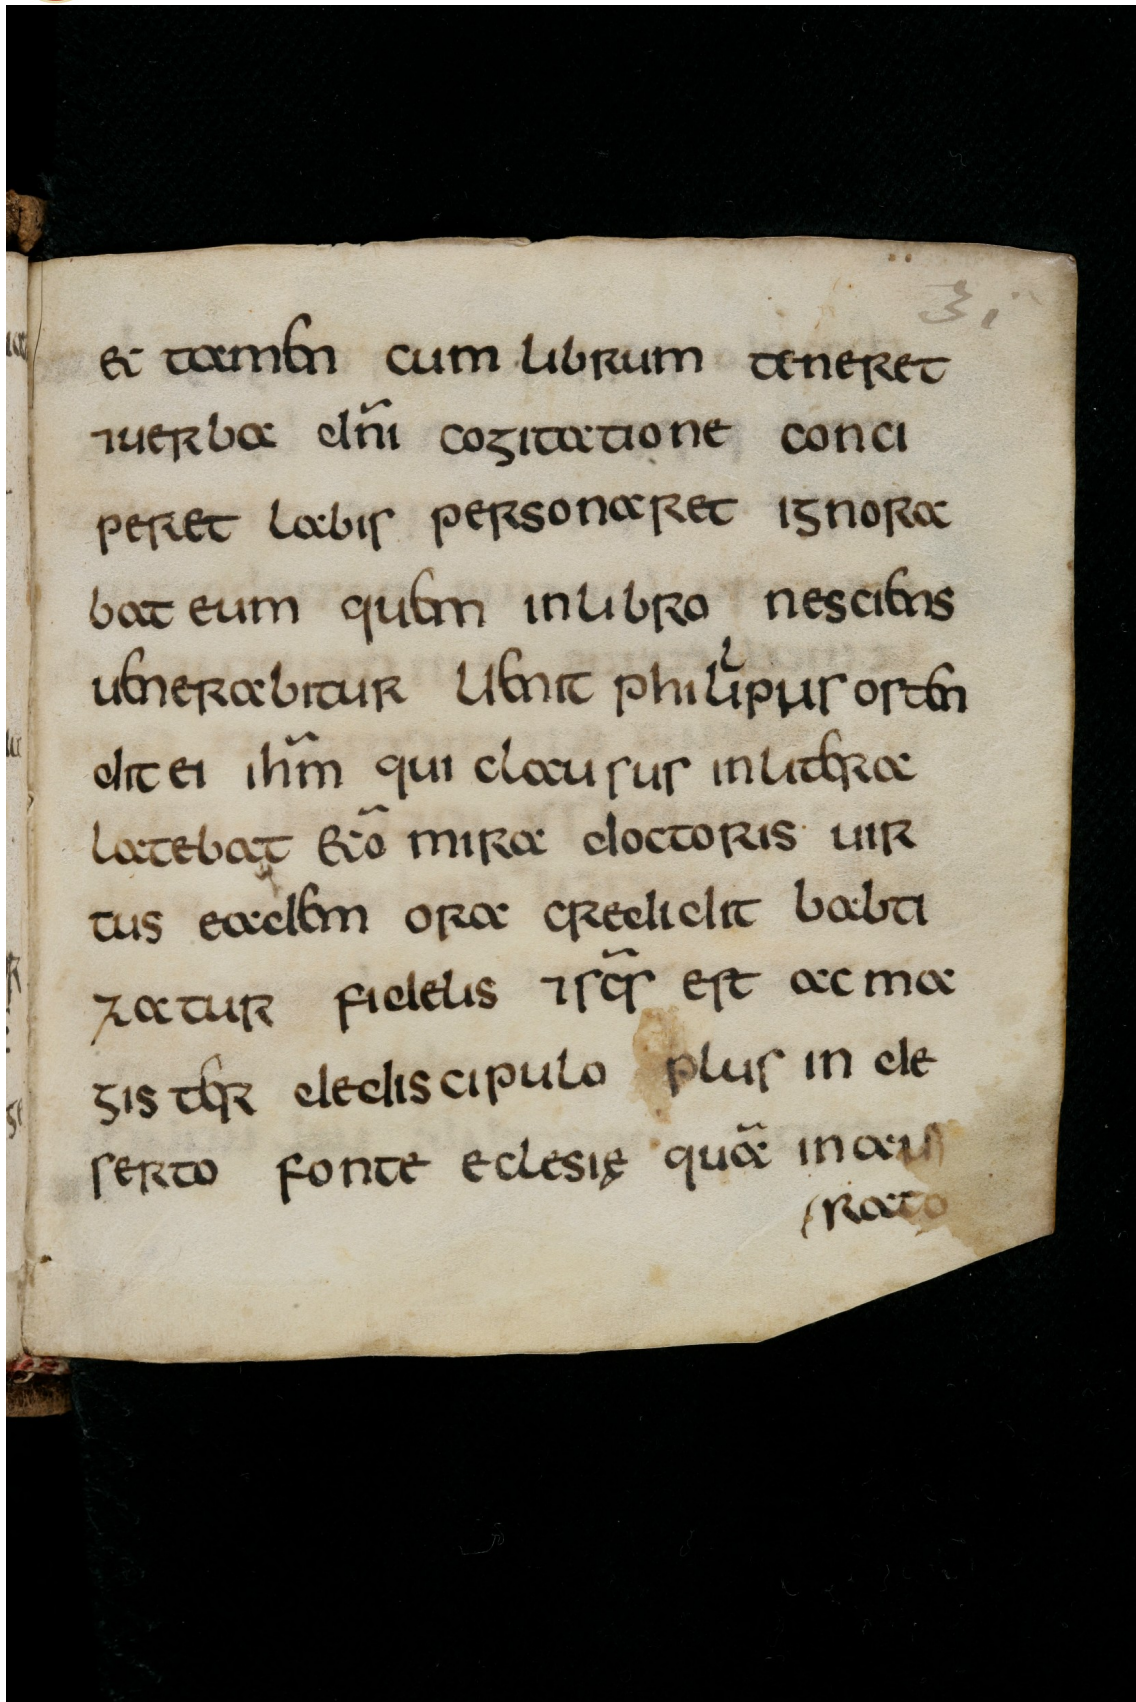 31
et tamen cum librum teneret
⁊uerba dn̄i cogitatione conci
peret labis personaret ignora
bat eum quem inlibro nesciens
uenerabitur Uenit philippus osten
dit ei ih̄m qui clausus inlitera
latebat et ō mira doctoris uir
tus eadem ora credidit babti
zatur fidelis ⁊sc̄s est ac ma
gister dediscipulo plus in de
serto fonte eclesię quā inau
rato